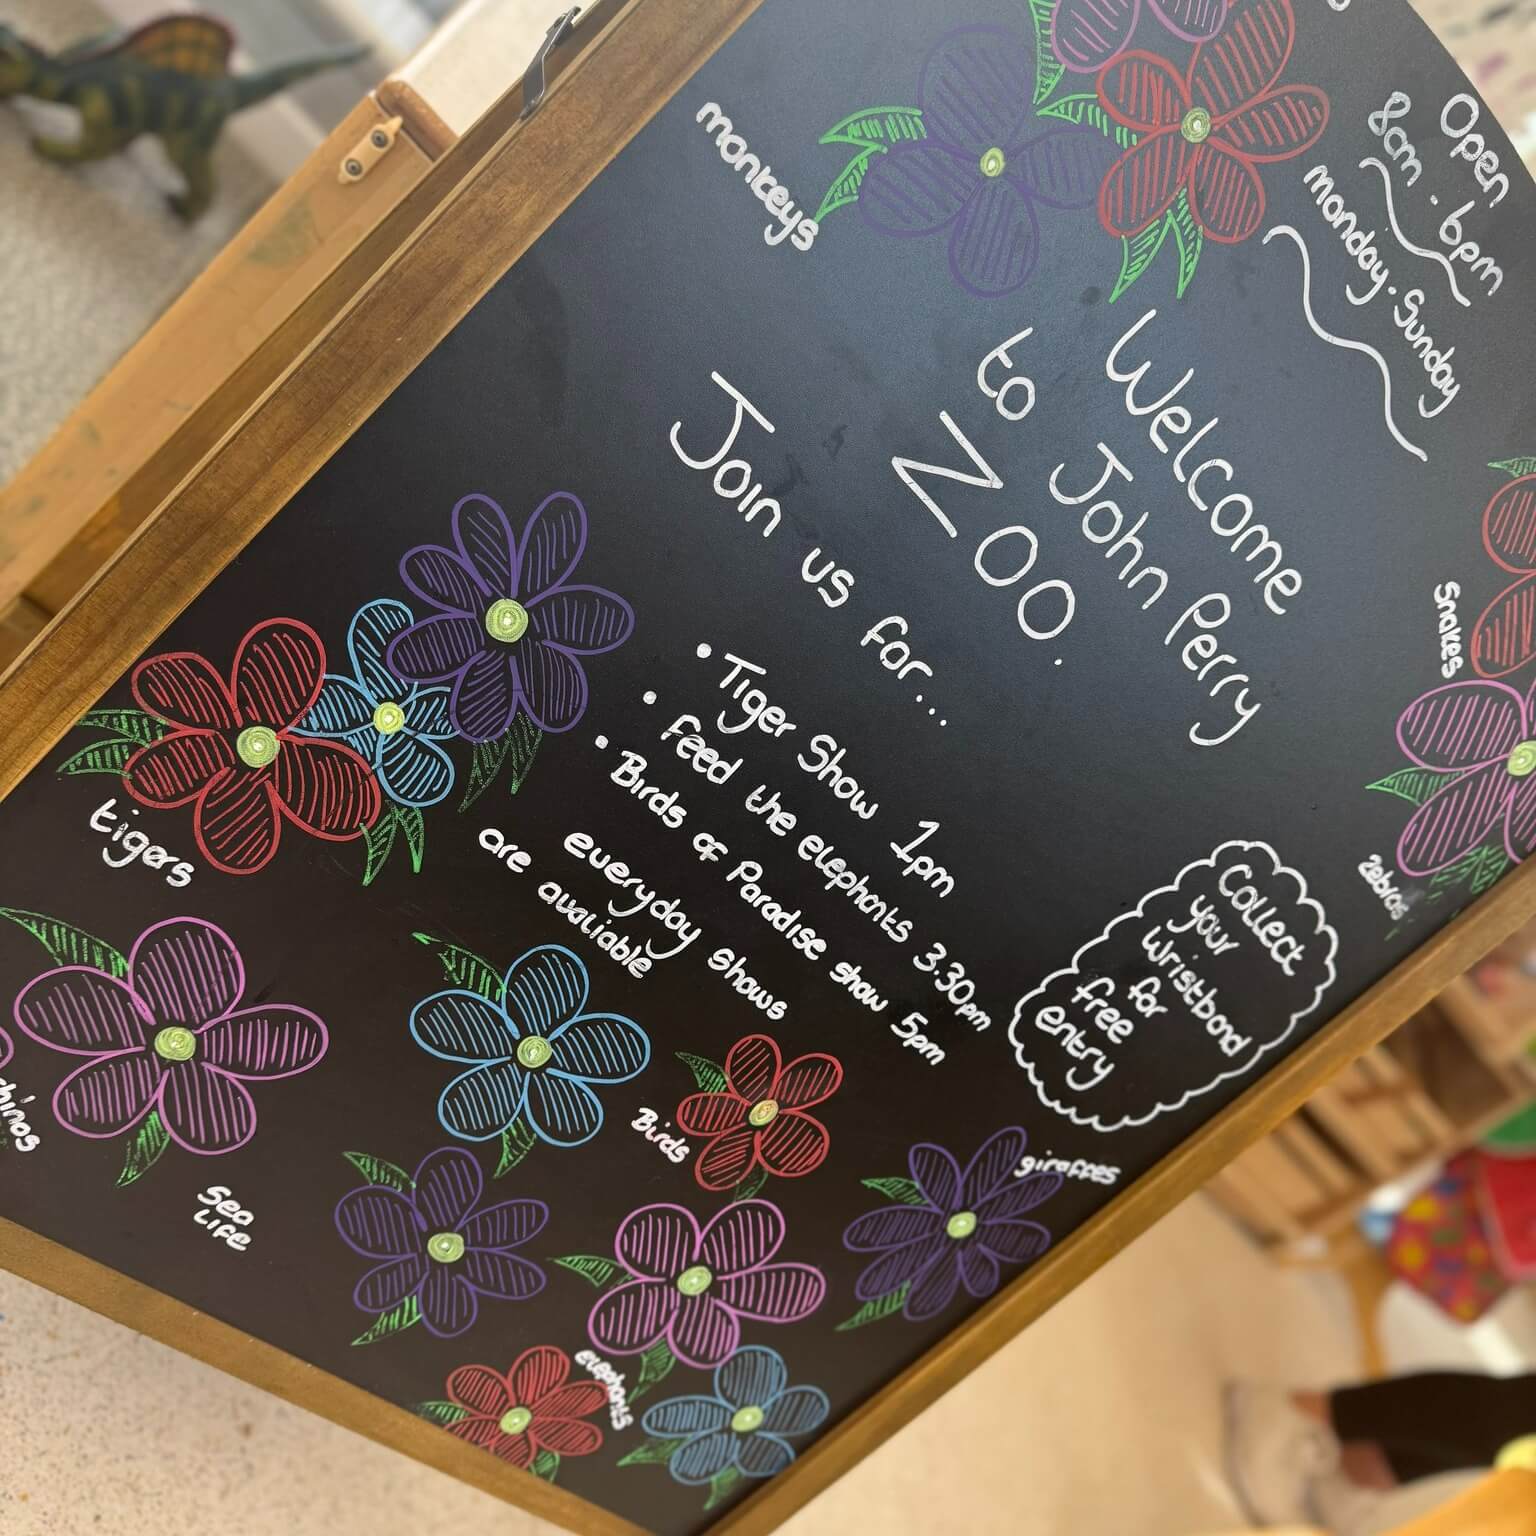 Open
8am - 6pm
monday - Sunday
monkeys
Welcome
to John Perry
ZOO.
Join us for...
• Tiger Show 1pm
• feed the elephants 3.30pm
• Birds of Paradise show 5pm
everyday shows
are avaliable
Snakes
zebras
Collect
your
Wristband
for
free
entry
tigers
hinos
Sea
Life
Birds
giraffes
elephants